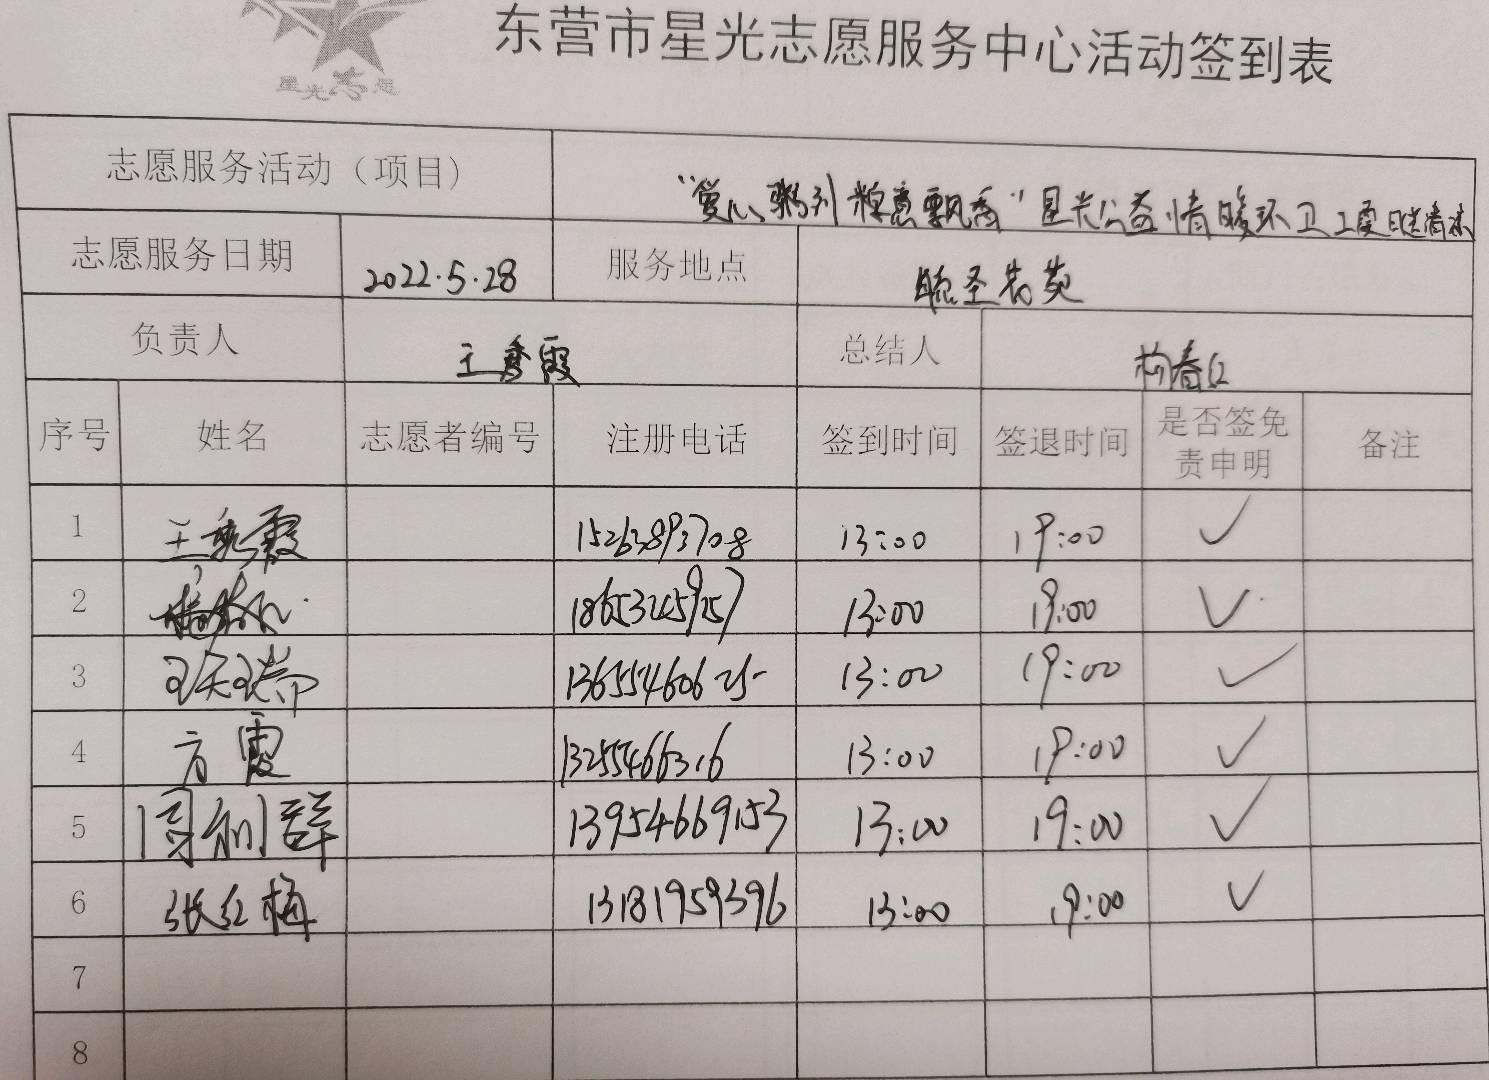 东营市星光志愿服务中心活动签到表
星光志愿
志愿服务活动（项目） "爱心粥到 粽意飘香"星光公益情暖环卫工
志愿服务日期 2022.5.28 服务地点
负责人 王秀霞 总结人
序号 姓名 志愿者编号 注册电话 签到时间 签退时间 是否签免责申明 备注
1 王秀霞 15263893708 13:00 19:00 ✓
2 18653245957 13:00 19:00 ✓
3 13655460625 13:00 19:00 ✓
4 方霞 13255466316 13:00 19:00 ✓
5 周利群 13954669153 13:00 19:00 ✓
6 张红梅 13181959396 13:00 19:00 ✓
7
8